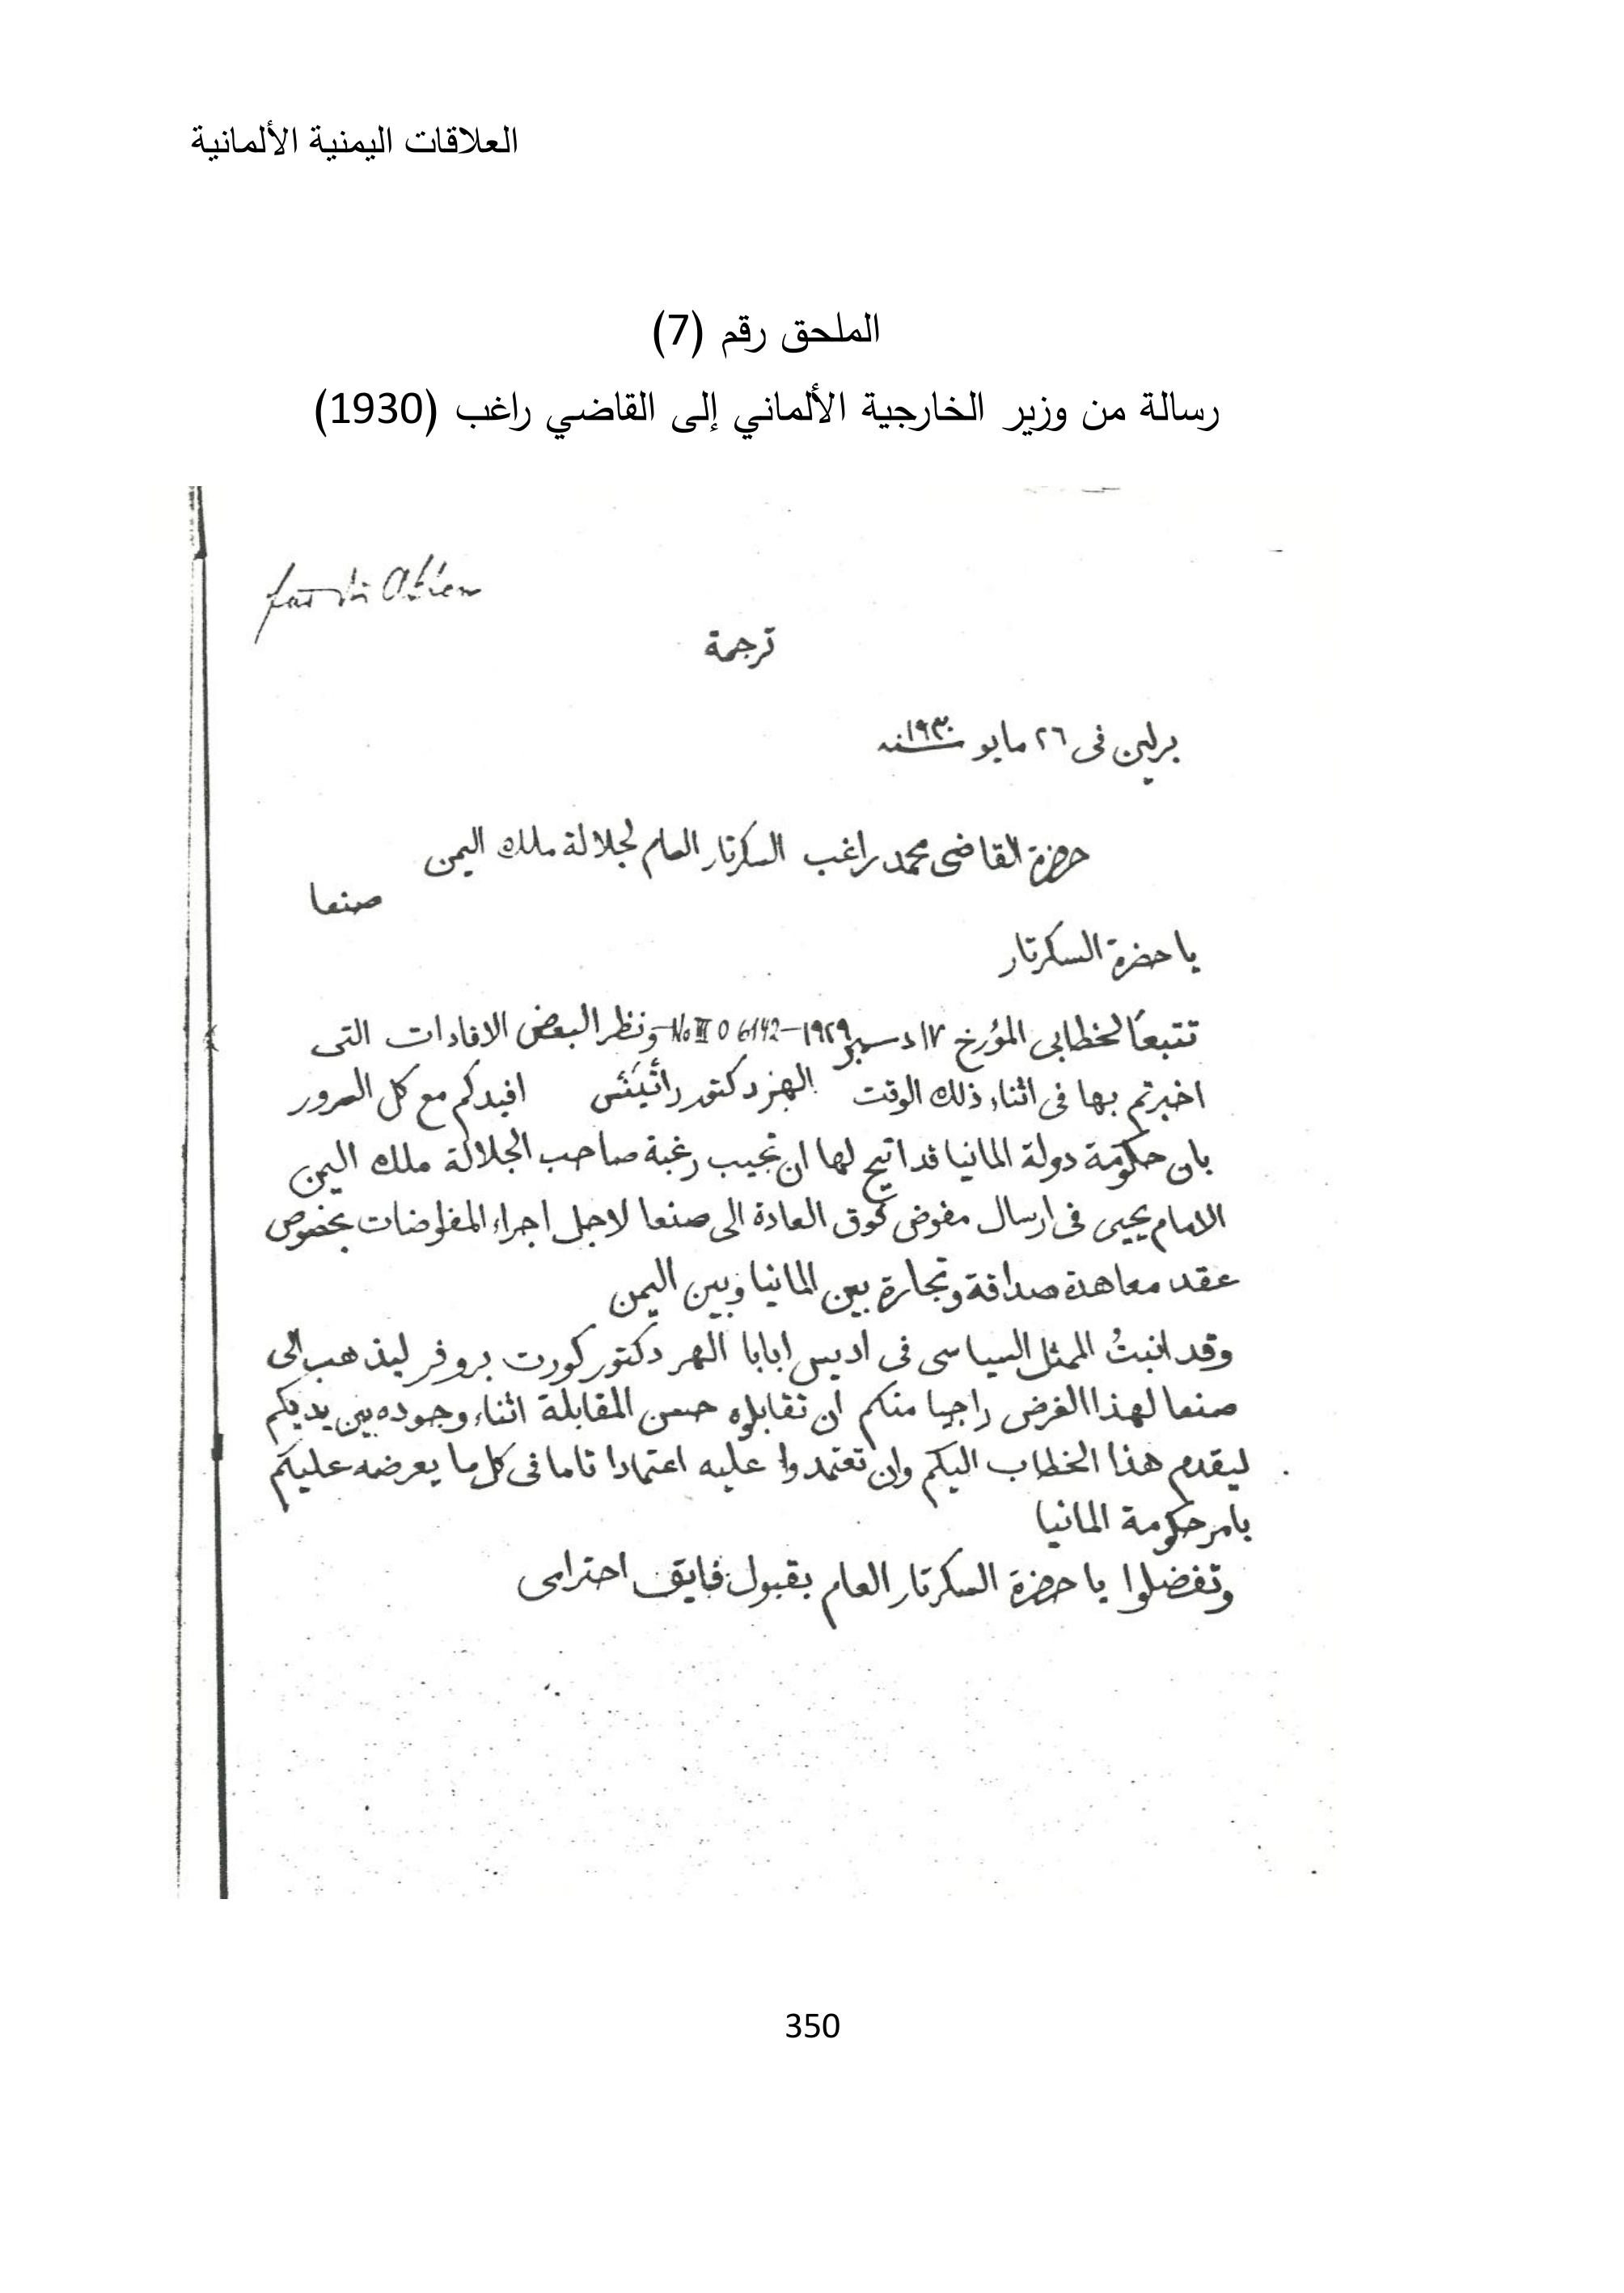 العلاقات اليمنية الألمانية
الملحق رقم (7)
رسالة من وزير الخارجية الألماني إلى القاضي راغب (1930)
ترجمة
برلين فى ٢٦ مايو سنه ١٩٣٠
حضرة القاضى محمد راغب السكرتار العام لجلالة ملك اليمن
صنعا
يا حضرة السكرتار
تتبعًا لخطابى المؤرخ ١٧ دسمبر ١٩٢٩ – No III O 6142 – ونظرا لبعض الافادات التى
اخبرتم بها فى اثناء ذلك الوقت الهر دكتور راثينس افيدكم مع كل السرور
بان حكومة دولة المانيا قد اتيح لها ان تجيب رغبة صاحب الجلالة ملك اليمن
الامام يحيى فى ارسال مفوض فوق العادة الى صنعا لاجل اجراء المفاوضات بخصوص
عقد معاهدة صداقة وتجارة بين المانيا وبين اليمن
وقد انبتُ الممثل السياسى فى اديس ابابا الهر دكتور كورت بروفر ليذهب الى
صنعا لهذا الغرض راجيا منكم ان تقابلوه حسن المقابلة اثناء وجوده بين يديكم
ليقدم هذا الخطاب اليكم وان تعتمدوا عليه اعتمادا تاما فى كل ما يعرضه عليكم
بامر حكومة المانيا
وتفضلوا يا حضرة السكرتار العام بقبول فايق احترامى
350